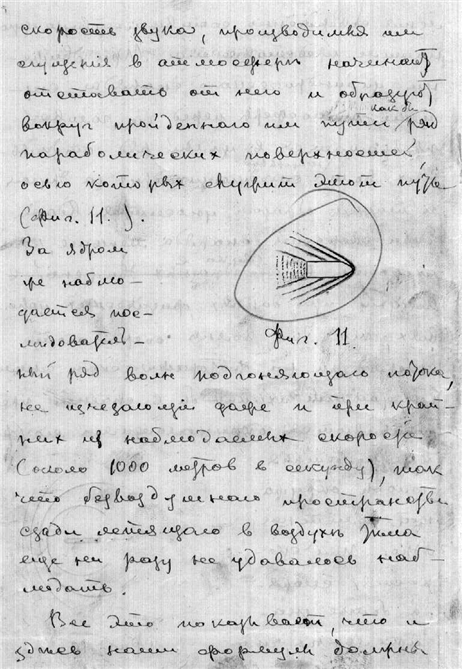 скорость звука, производимыя им
сгущения в атмосферѣ начинают
отставать от него и образуют
как бы
вокруг пройденнаго им пути ряд
параболических поверхностей,
осью которых служит этот путь
(фиг. 11.).
За ядром
же наблю-
дается пос-
лѣдователь-
Фиг. 11.
ный ряд волн подгоняющаго потока,
не исчезающий даже и при край-
них из наблюдаемых скоростей
(около 1000 метров в секунду), так
что безвоздушнаго пространства
сзади летящаго в воздухѣ тѣла
еще ни разу не удавалось наб-
людать.
Все это показывает, что и
здѣсь наши формулы должны